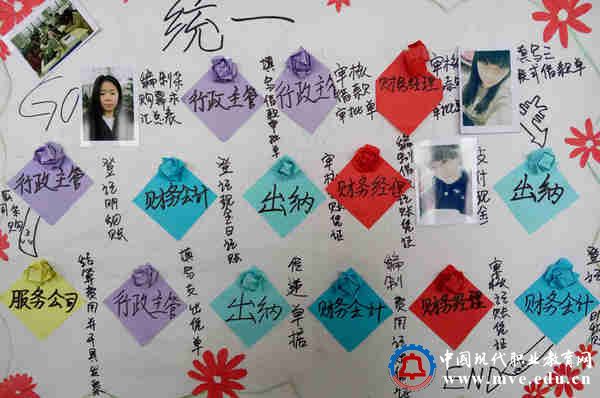 统一
GO
编制采
购需求
汇总表
行政主管
填写借款审批单
行政主管
审核
借款
审批单
财务经理
审核
借款
审批单
填写三
联式借款单
行政主管
登记明细账
财务会计
登记现金日记账
出纳
审核记账凭证
财务经理
编制借款记账凭证
支付现金
出纳
服务公司
结算费用并开具发票
行政主管
填写支出凭单
出纳
传递单据
财务会计
编制费用记账凭证
财务经理
审核记账凭证
财务会计
登记
END
中国现代职业教育网
www.mve.edu.cn